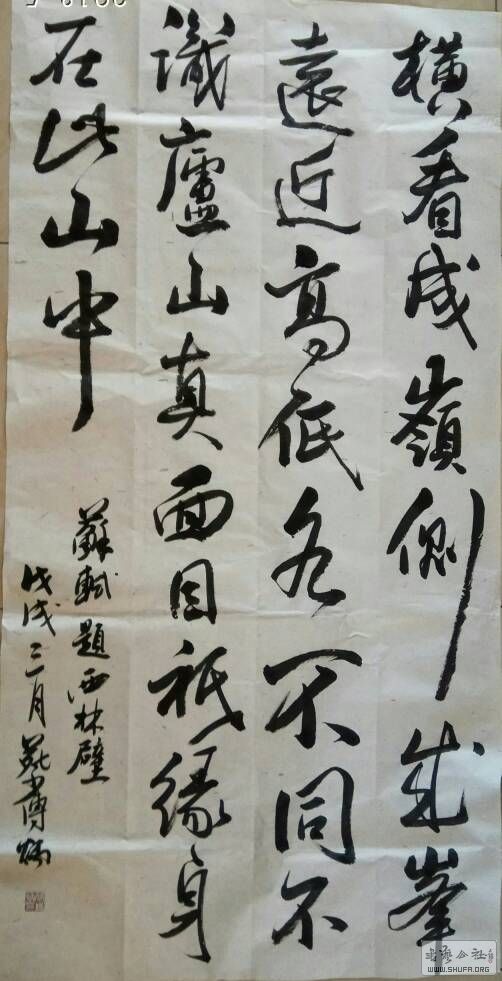 橫看成嶺側成峯
遠近高低各不同不
識廬山真面目祇緣身
在此山中
蘇軾題西林壁
戊戌三月
WWW.SHUFA.ORG